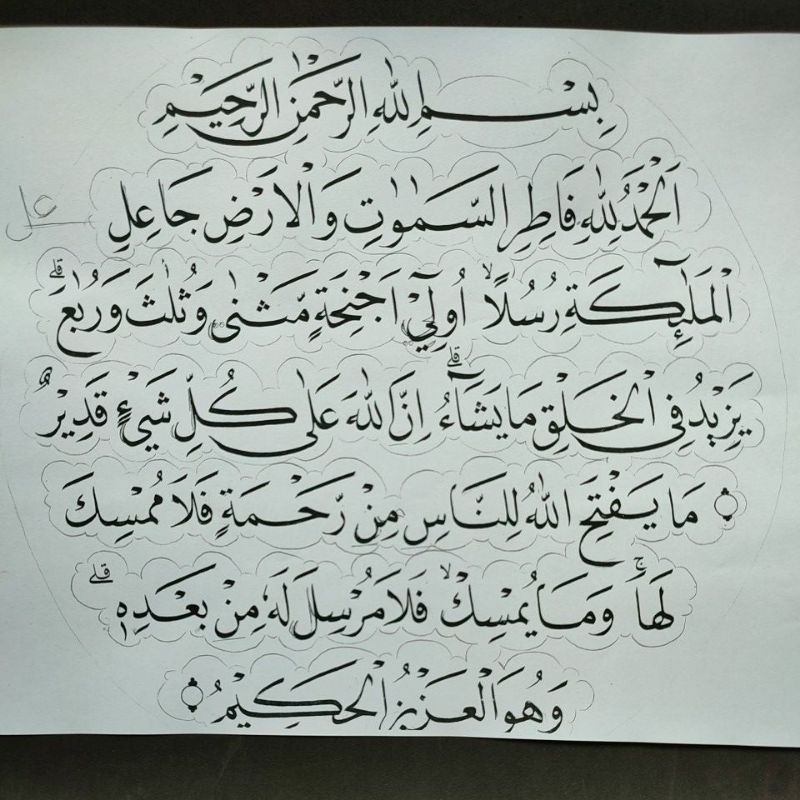 بِسْمِ اللهِ الرَّحْمٰنِ الرَّحِيْمِ
اَلْحَمْدُ لِلّٰهِ فَاطِرِ السَّمٰوٰتِ وَالْاَرْضِ جَاعِلِ
الْمَلٰٓئِكَةِ رُسُلًا اُولِيْٓ اَجْنِحَةٍ مَّثْنٰى وَثُلٰثَ وَرُبٰعَ ۗ
يَزِيْدُ فِى الْخَلْقِ مَا يَشَاۤءُ ۗ اِنَّ اللّٰهَ عَلٰى كُلِّ شَيْءٍ قَدِيْرٌ
۝ مَا يَفْتَحِ اللّٰهُ لِلنَّاسِ مِنْ رَّحْمَةٍ فَلَا مُمْسِكَ
لَهَا ۚ وَمَا يُمْسِكْ ۙ فَلَا مُرْسِلَ لَهٗ مِنْۢ بَعْدِهٖ ۗ
وَهُوَ الْعَزِيْزُ الْحَكِيْمُ ۝